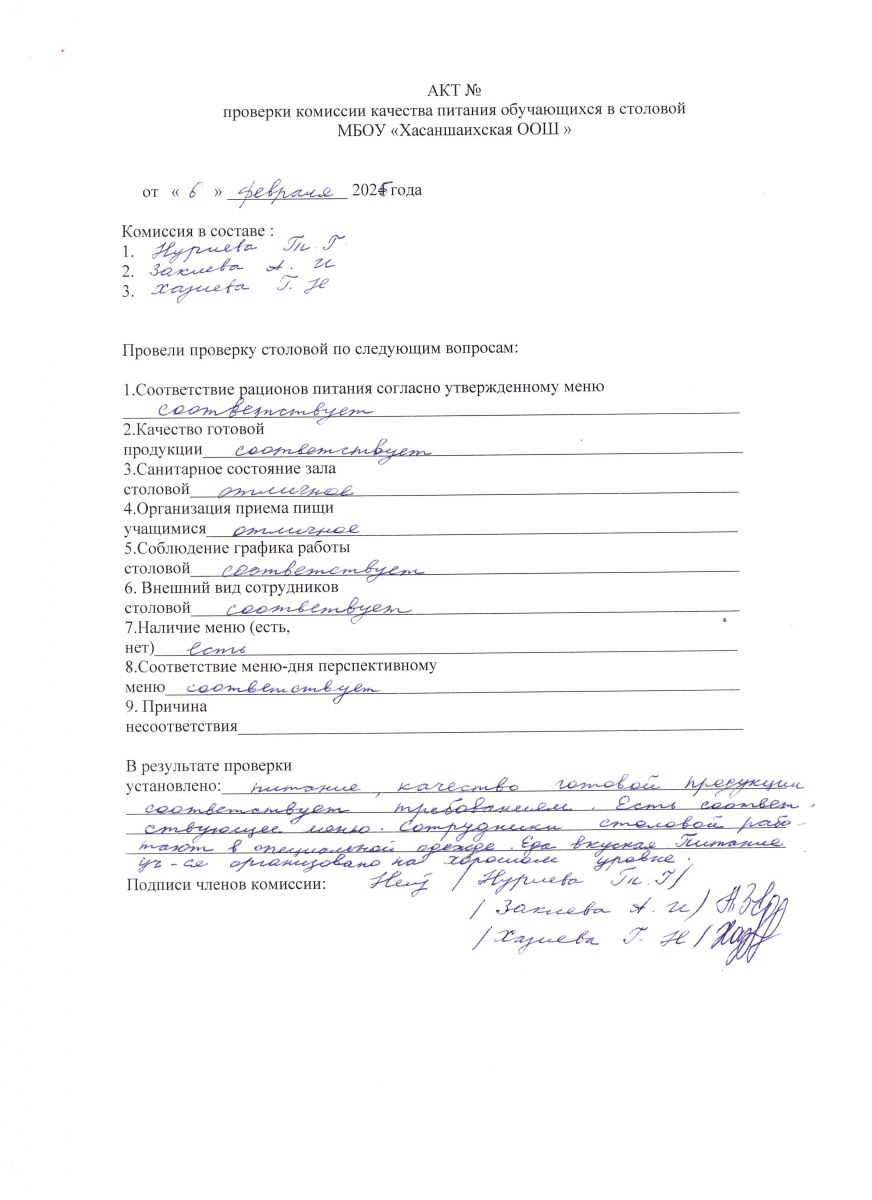 АКТ №
проверки комиссии качества питания обучающихся в столовой
МБОУ «Хасаншаихская ООШ »
от « 6 » февраля 2025 года
Комиссия в составе :
1. Нуриева Гп. Г
2. Закиева А. И
3. Хазиева Г. Н
Провели проверку столовой по следующим вопросам:
1.Соответствие рационов питания согласно утвержденному меню
соответствует
2.Качество готовой
продукции соответствует
3.Санитарное состояние зала
столовой отличное
4.Организация приема пищи
учащимися отличное
5.Соблюдение графика работы
столовой соответствует
6. Внешний вид сотрудников
столовой соотвествует
7.Наличие меню (есть,
нет) есть
8.Соответствие меню-дня перспективному
меню соответствует
9. Причина
несоответствия
В результате проверки
установлено: питание , качество готовой продукции
соответствует требованием . Есть соответ
ствующее меню. Сотрудники столовой рабо-
тают в специальной одежде. Еда вкусная Питание
уч-ся организовано на хорошом уровне.
Подписи членов комиссии: / Нуриева Гп. Г/
/ Закиева А. И/
/ Хазиева Г. Н /